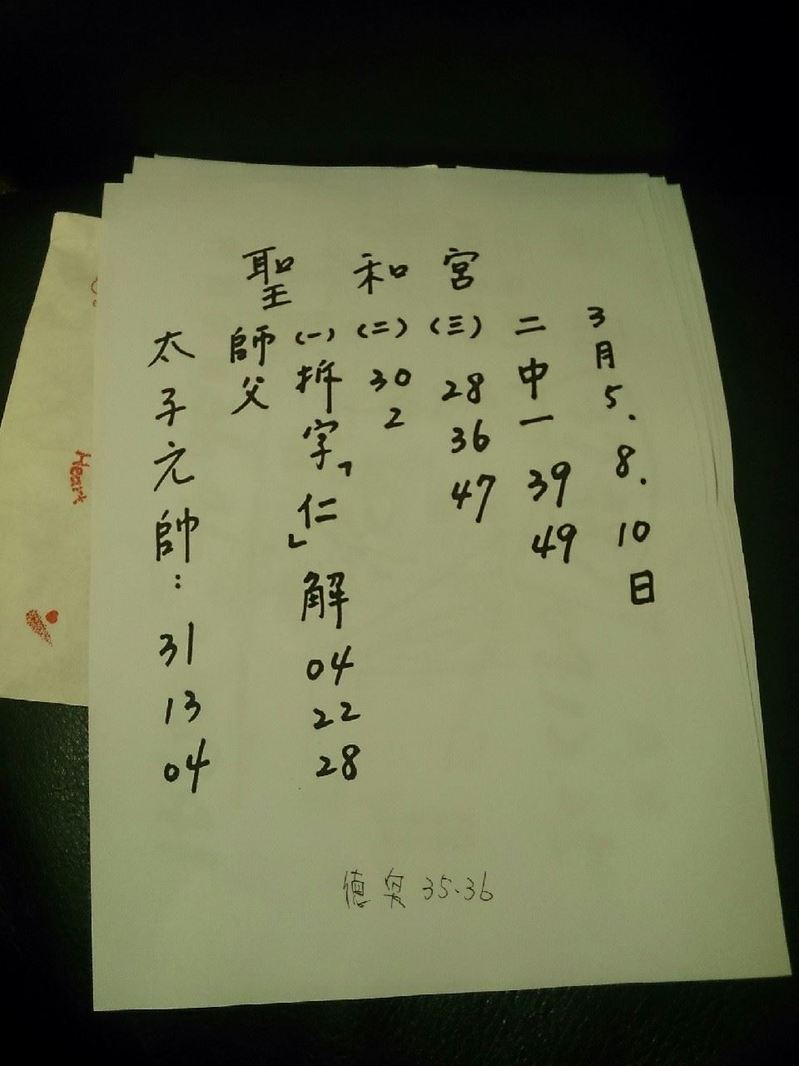 聖和宮
太子元帥：31 13 04
師父
(一)拆字「仁」解 04 22 28
(二) 30 2
(三) 28 36 47
二中一 39 49
3月5.8.10日
德 35.36
Heart